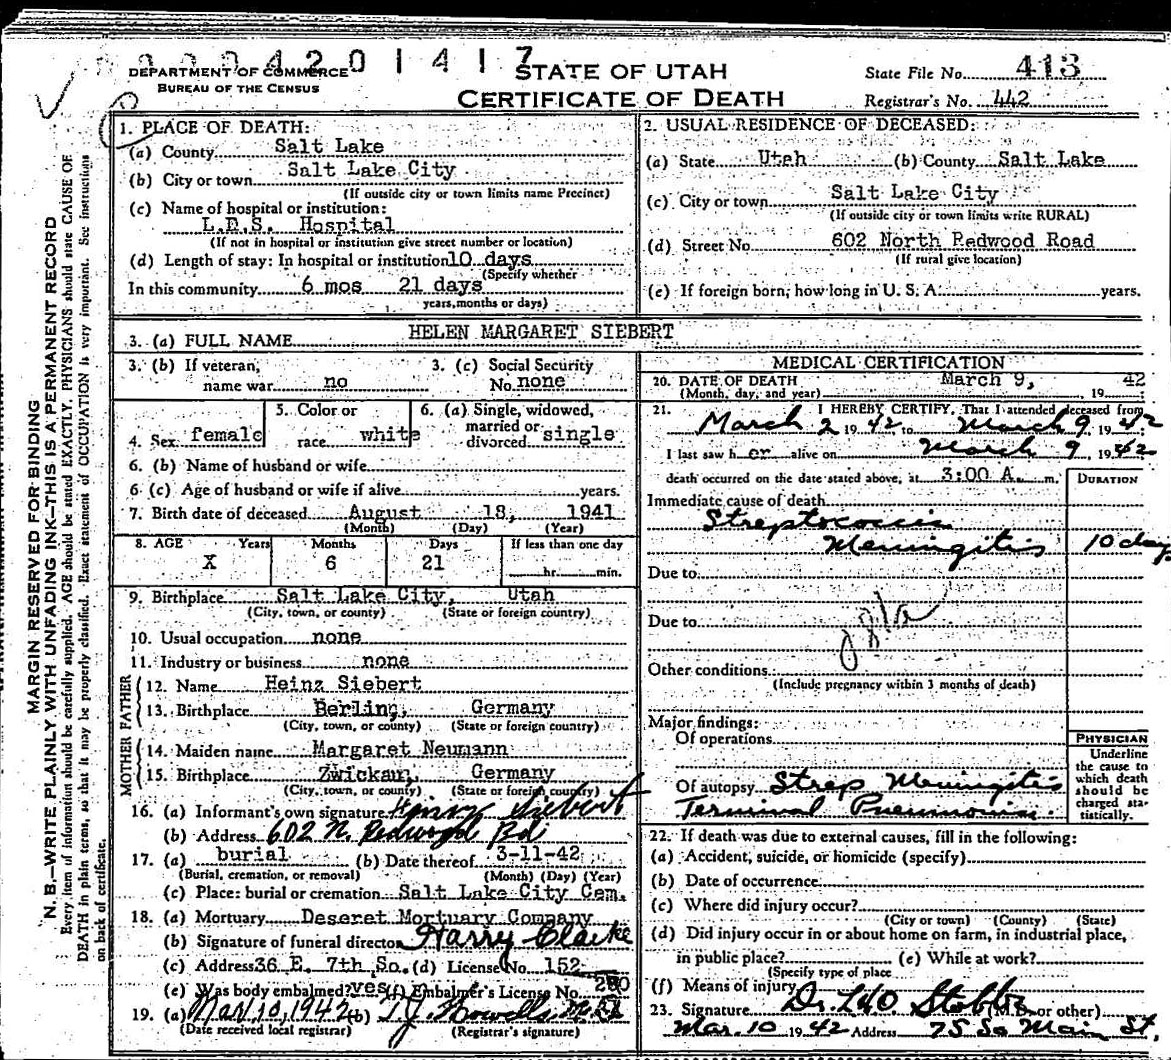 0004201417
DEPARTMENT OF COMMERCE
BUREAU OF THE CENSUS
STATE OF UTAH
CERTIFICATE OF DEATH
State File No. 413
Registrar's No. 442
MARGIN RESERVED FOR BINDING
N. B.—WRITE PLAINLY WITH UNFADING INK—THIS IS A PERMANENT RECORD
Every item of information should be carefully supplied. AGE should be stated EXACTLY. PHYSICIANS should state CAUSE OF
DEATH in plain terms, so that it may be properly classified. Exact statement of OCCUPATION is very important. See instruction
on back of certificate.
1. PLACE OF DEATH:
(a) County Salt Lake
(b) City or town Salt Lake City
(If outside city or town limits name Precinct)
(c) Name of hospital or institution:
L.E.S. Hospital
(If not in hospital or institution give street number or location)
(d) Length of stay: In hospital or institution 10 days
(Specify whether
In this community 6 mos 21 days
years, months or days)
2. USUAL RESIDENCE OF DECEASED:
(a) State Utah (b) County Salt Lake
(c) City or town Salt Lake City
(If outside city or town limits write RURAL)
(d) Street No. 602 North Redwood Road
(If rural give location)
(e) If foreign born, how long in U. S. A. years.
3. (a) FULL NAME HELEN MARGARET SIEBERT
3. (b) If veteran, name war no
3. (c) Social Security No. none
4. Sex female
5. Color or race white
6. (a) Single, widowed, married or divorced single
6. (b) Name of husband or wife
6 (c) Age of husband or wife if alive years.
7. Birth date of deceased August 18, 1941
(Month) (Day) (Year)
8. AGE Years Months Days If less than one day
X 6 21 hr. min.
9. Birthplace Salt Lake City, Utah
(City, town, or county) (State or foreign country)
10. Usual occupation none
11. Industry or business none
FATHER
12. Name Heinz Siebert
13. Birthplace Berling, Germany
(City, town, or county) (State or foreign country)
MOTHER
14. Maiden name Margaret Neumann
15. Birthplace Zwickau, Germany
(City, town, or county) (State or foreign country)
16. (a) Informant's own signature Henry Siebert
(b) Address 602 N. Redwood Rd
17. (a) burial (b) Date thereof 3-11-42
(Burial, cremation, or removal) (Month) (Day) (Year)
(c) Place: burial or cremation Salt Lake City Cem.
18. (a) Mortuary Deseret Mortuary Company
(b) Signature of funeral director Harry Clarke
(c) Address 36 E. 7th So. (d) License No. 152
(e) Was body embalmed? yes (f) Embalmer's License No. 280
19. (a) Mar 10, 1942 (b) T. J. Howells
(Date received local registrar) (Registrar's signature)
MEDICAL CERTIFICATION
20. DATE OF DEATH March 9, 19 42
(Month, day, and year)
21. I HEREBY CERTIFY, That I attended deceased from
March 2 1942, to March 9 1942
I last saw her alive on March 9, 1942
death occurred on the date stated above, at 3:00 A. m.
DURATION
Immediate cause of death
Streptococcic
Meningitis 10 days
Due to
Due to
Other conditions
(Include pregnancy within 3 months of death)
Major findings:
Of operations
Of autopsy Strep Meningitis
Terminal Pneumonia.
PHYSICIAN
Underline
the cause to
which death
should be
charged sta-
tistically.
22. If death was due to external causes, fill in the following:
(a) Accident, suicide, or homicide (specify)
(b) Date of occurrence
(c) Where did injury occur?
(City or town) (County) (State)
(d) Did injury occur in or about home on farm, in industrial place,
in public place? (e) While at work?
(Specify type of place
(f) Means of injury
23. Signature Dr. (M.D. or other)
Mar. 10 1942 Address 75 So Main St.